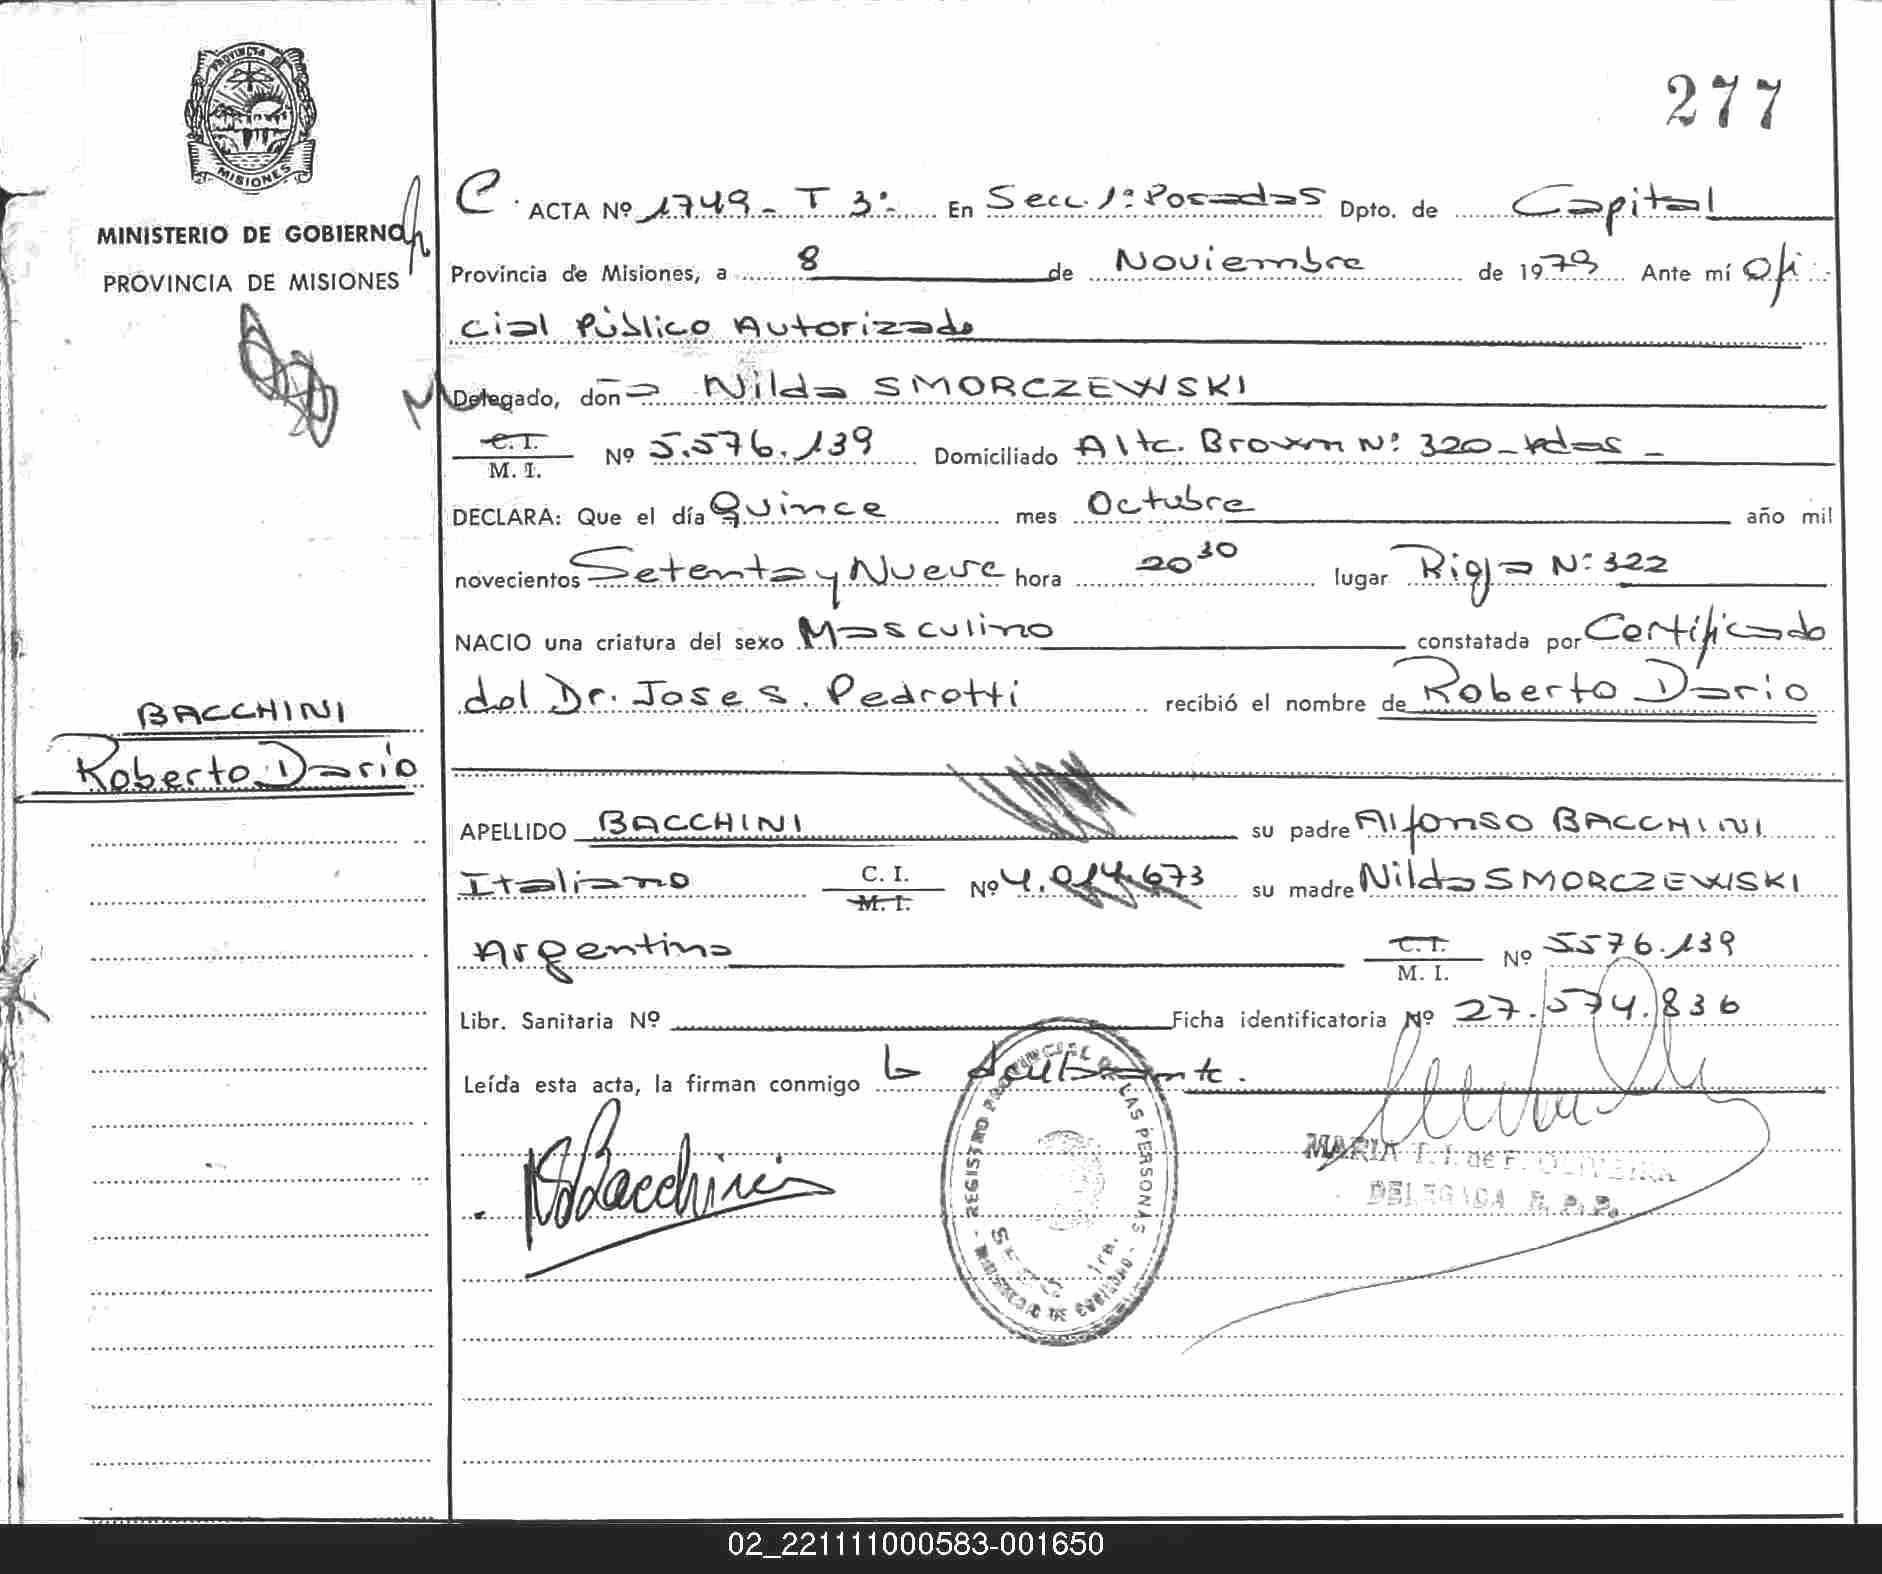 277
PROVINCIA DE
MISIONES
MINISTERIO DE GOBIERNO
PROVINCIA DE MISIONES
BACCHINI
Roberto Dario
C. ACTA Nº 1749 - T 3º En Secc. 1ª Posadas Dpto. de Capital
Provincia de Misiones, a 8 de Noviembre de 1979 Ante mí Ofi
cial Público Autorizado
Delegado, don a Nilda SMORCZEWSKI
C. I.
M. I. Nº 5.576.139 Domiciliado Alte. Brown Nº 320 - Pdas -
DECLARA: Que el día Quince mes Octubre año mil
novecientos Setenta y Nueve hora 20 30 lugar Rioja Nº 322
NACIO una criatura del sexo Masculino constatada por Certificado
del Dr. Jose S. Pedrotti recibió el nombre de Roberto Dario
APELLIDO BACCHINI su padre Alfonso BACCHINI
Italiano C. I. M. I. Nº 4.014.673 su madre Nilda SMORCZEWSKI
Argentina C. I. M. I. Nº 5576.139
Libr. Sanitaria Nº Ficha identificatoria Nº 27.574.836
Leída esta acta, la firman conmigo la declarante.
NSBacchini
REGISTRO PROVINCIAL DE LAS PERSONAS
SECC. 1ra.
MINISTERIO DE GOBIERNO
MARIA T. I. de F. OLIVEIRA
DELEGADA R. P. P.
02_221111000583-001650